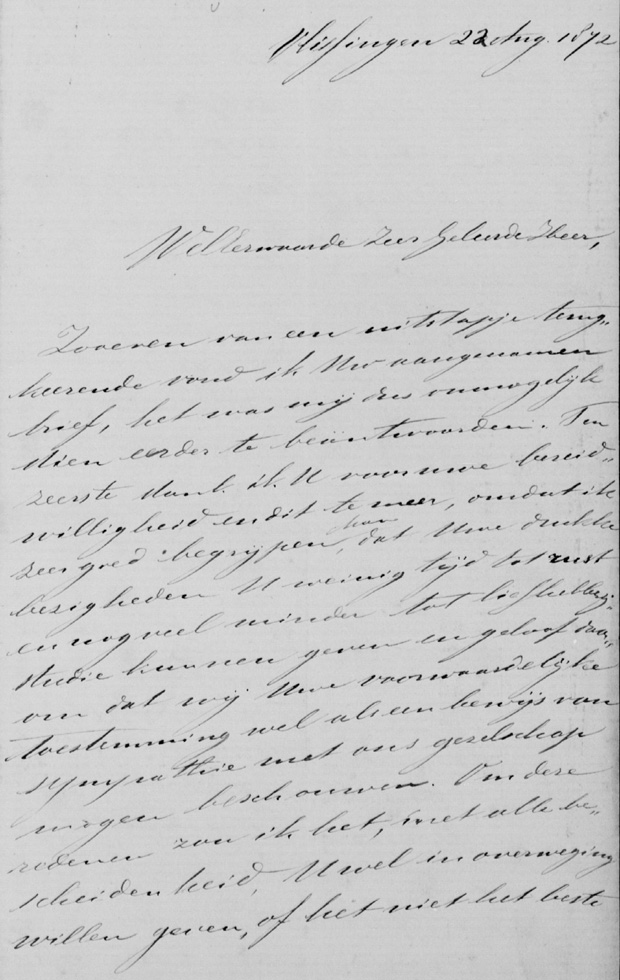 Vlissingen 22 Aug. 1872
WelEerwaarde Zeer Geleerde Heer,
Zoo even van een uitstapje terug-
keerende vond ik Uw aangenamen
brief, het was mij dus onmogelijk
dien eerder te beäntwoorden. Ten
zeerste dank ik U voor uwe bereid-
willigheid en dit te meer, omdat ik
zeer goed begrijpen kan, dat Uwe drukke
bezigheden U weinig tijd tot rust
en nog veel minder tot liefhebberij-
studie kunnen geven en geloof daar-
om dat wij Uwe voorwaardelijke
toestemming wel als een bewijs van
sympathie met ons gezelschap
mogen beschouwen. Om deze
redenen zou ik het, met alle be-
scheidenheid, U wel in overweging
willen geven, of het niet het beste